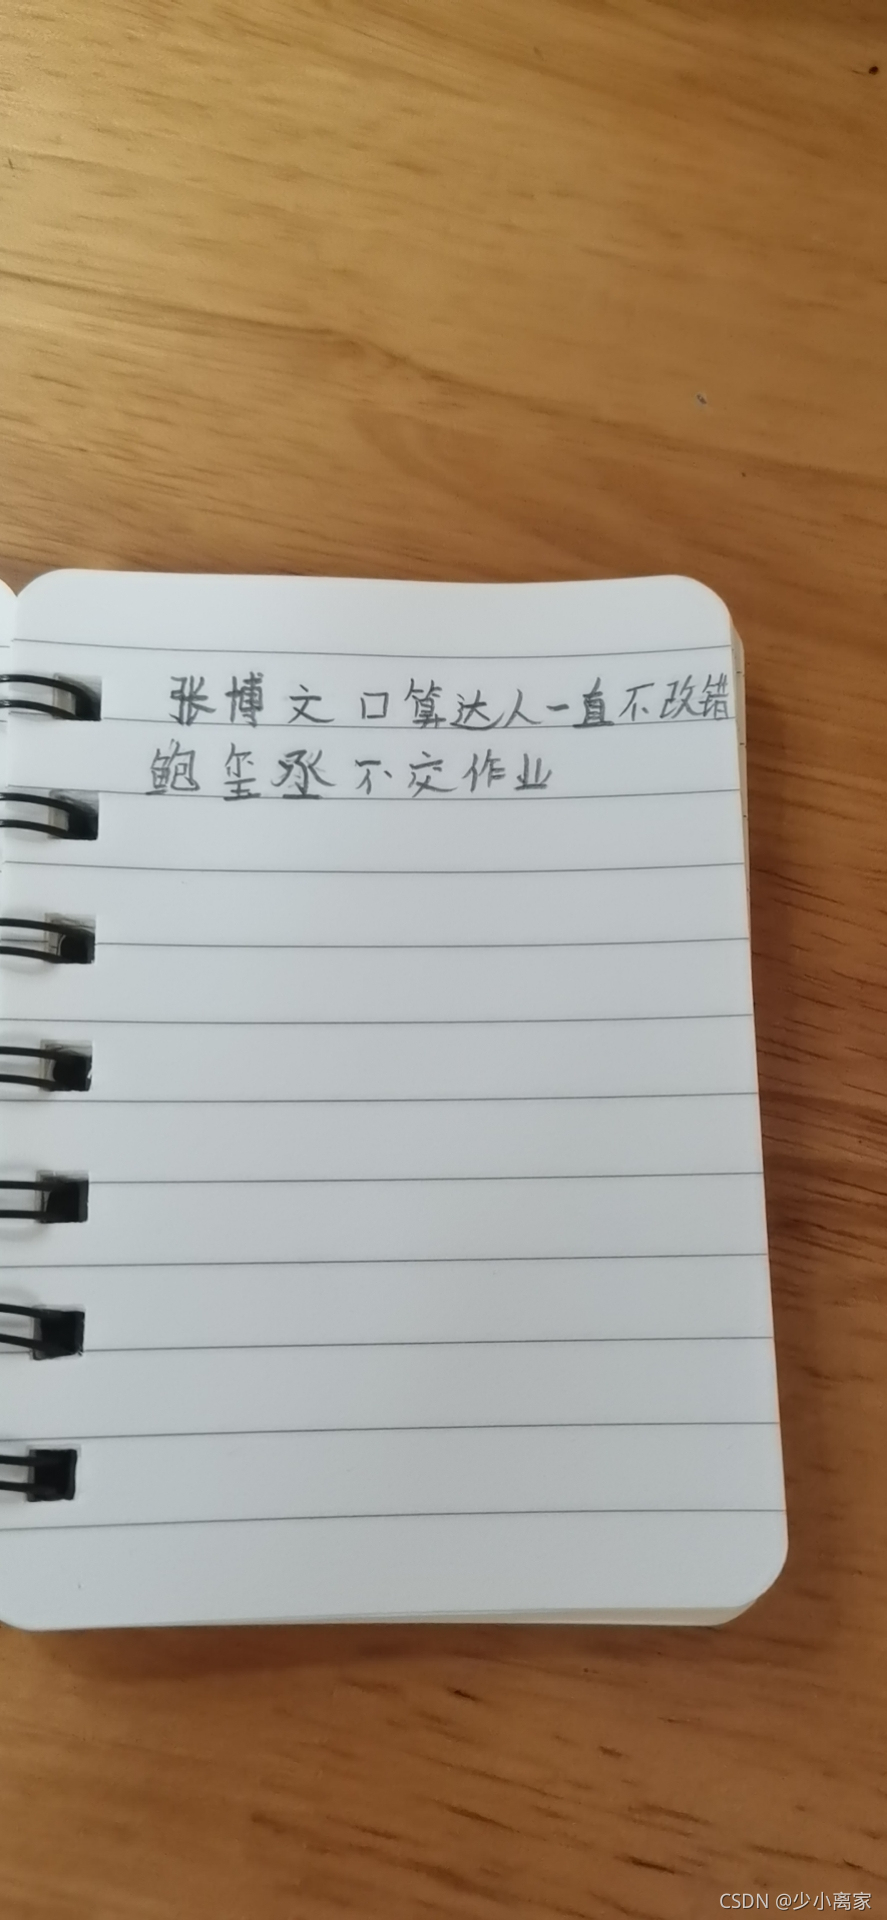 张博文口算达人一直不改错
鲍玺丞不交作业
CSDN @少小离家